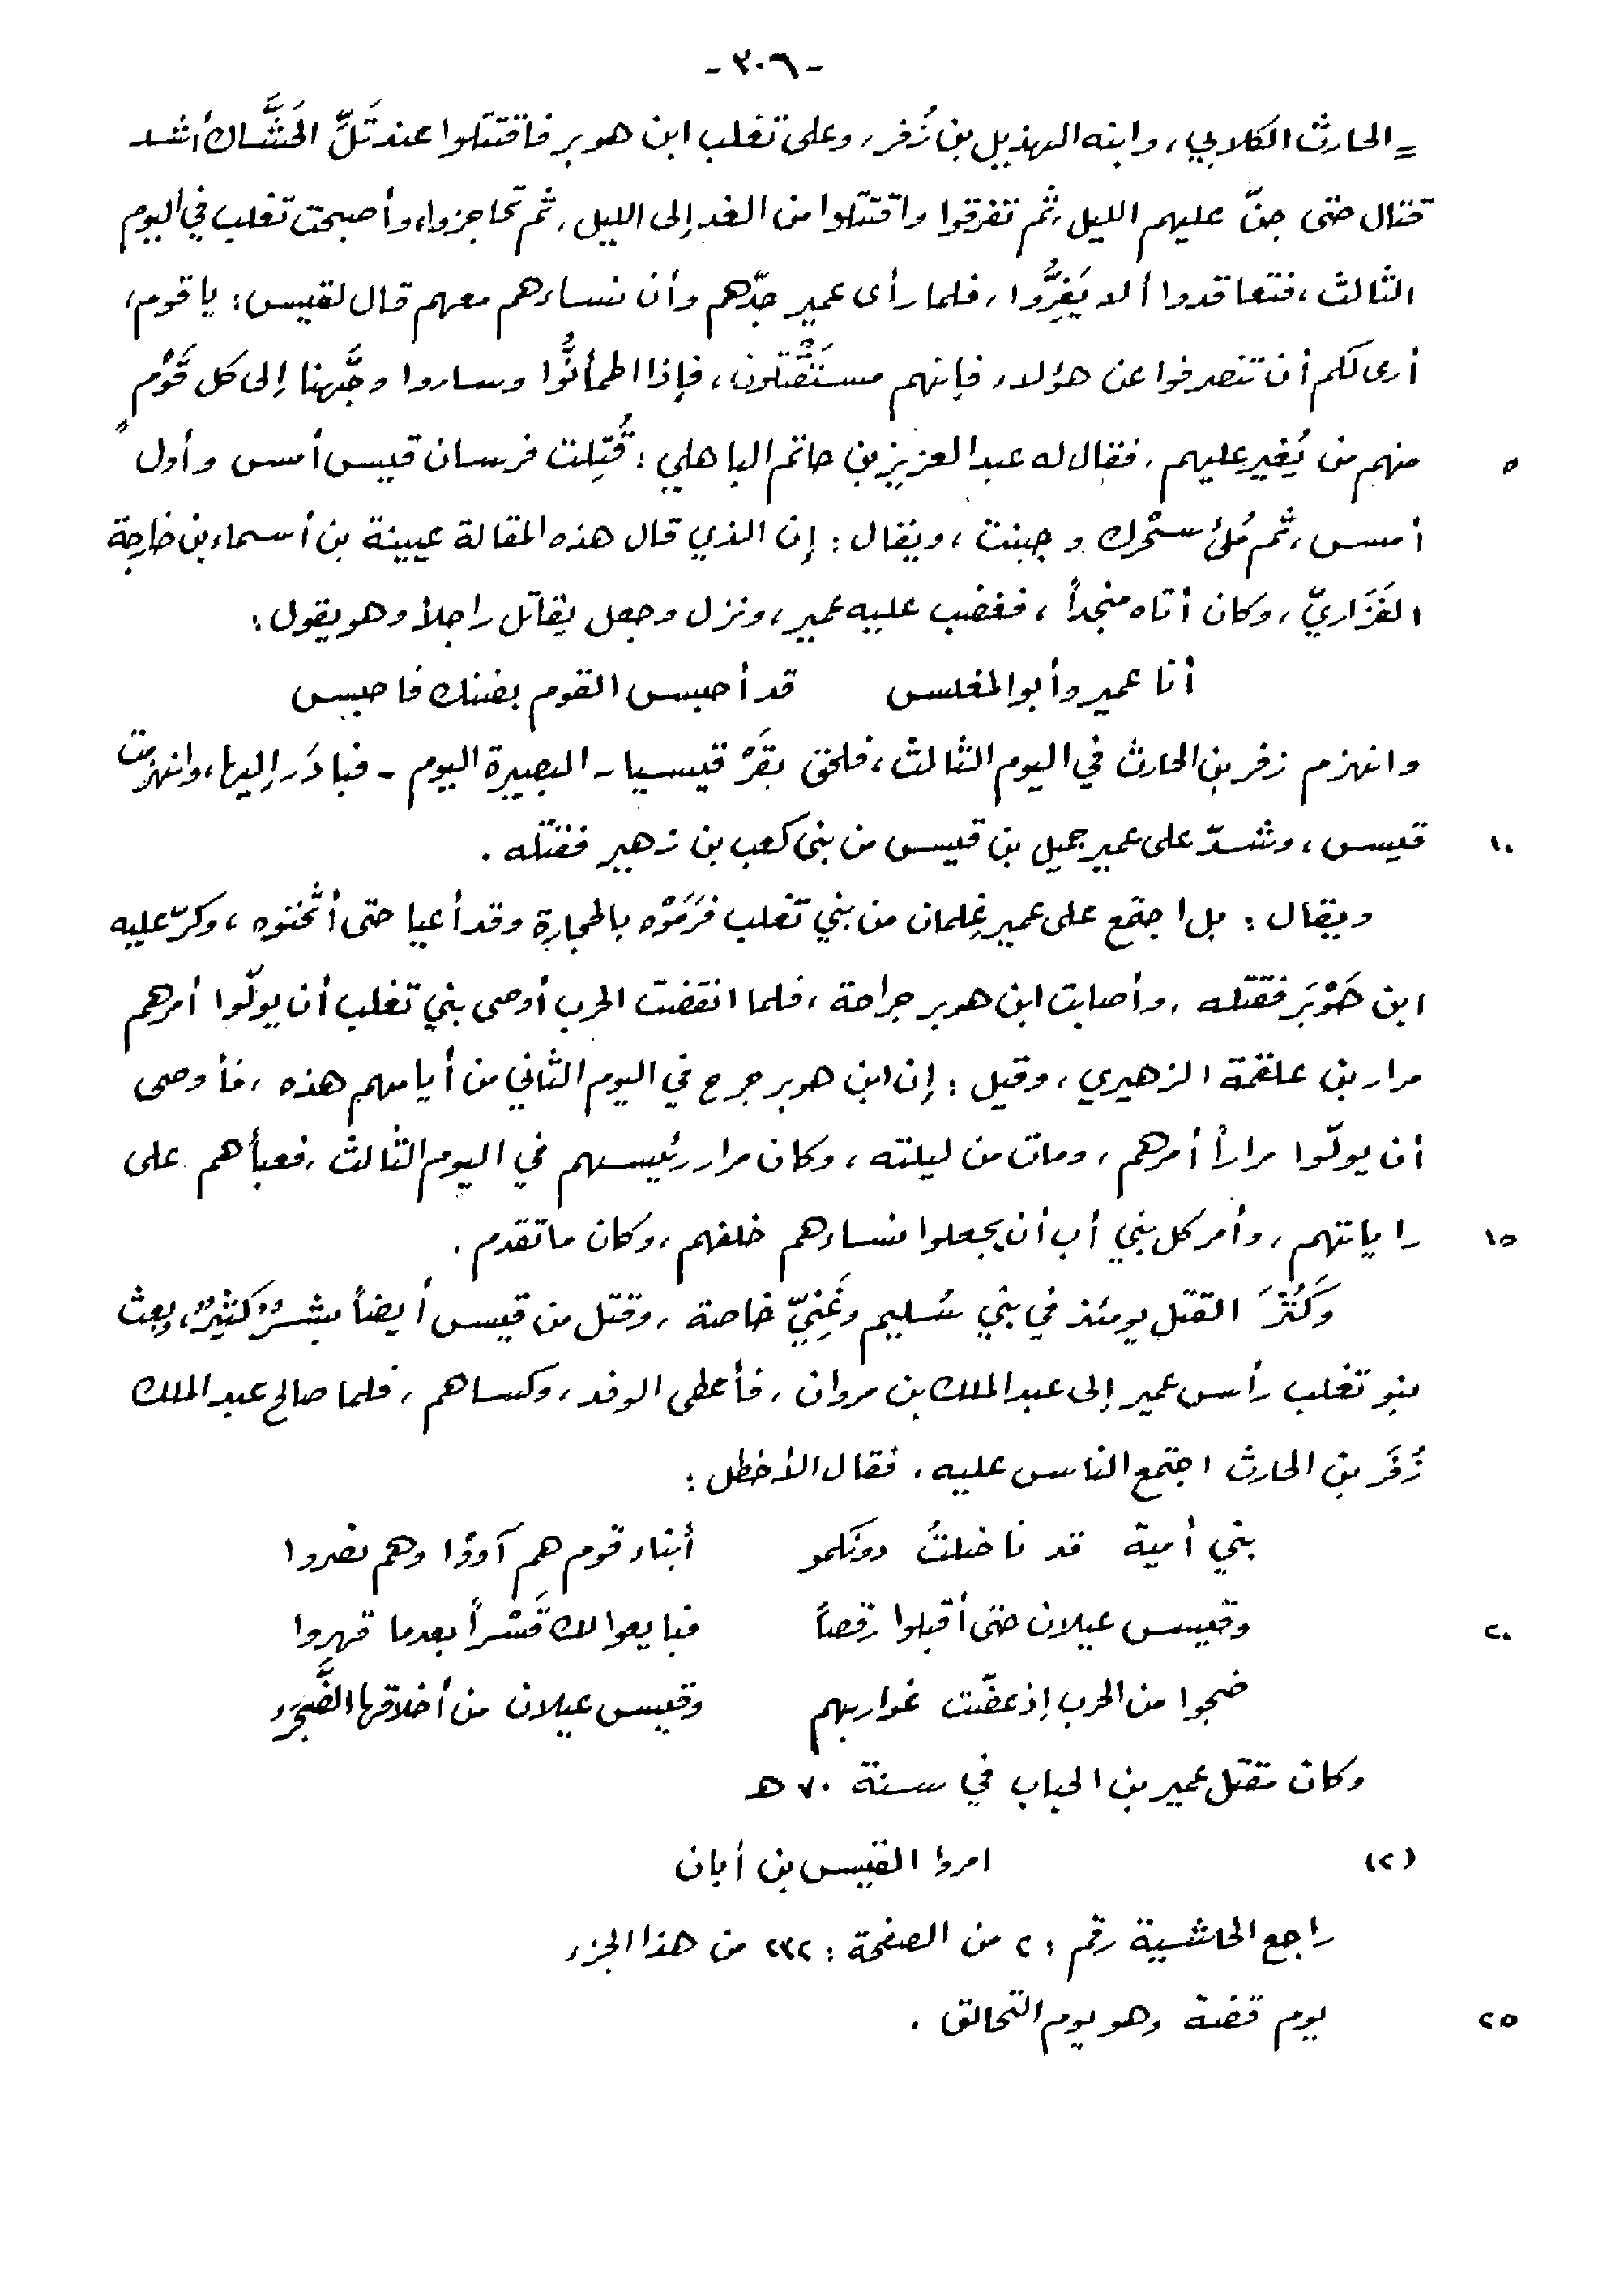 -٣٠٦-
= الحارث الكلابي، وابنه الهذيل بن زُفر، وعلى تغلب ابن هوبر فاقتتلوا عند تَلِّ الحَشَّاك أشد
قتال حتى جنّ عليهم الليل، ثم تفرقوا واقتتلوا من الغد إلى الليل، ثم تحاجزوا، وأصبحت تغلب في اليوم
الثالث، فتعاقدوا ألا يَفِرُّوا، فلما رأى عمير جدّهم وأن نساءهم معهم قال لقيس: يا قوم،
أرى لكم أن تنصرفوا عن هؤلاء فإنهم مستَقْتلون، فإذا اطمأنُّوا وساروا وجَّهنا إلى كل قَوْمٍ
٥ منهم من يُغير عليهم، فقال له عبد العزيز بن حاتم الباهلي: قُتِلت فرسان قيس أمس وأول
أمس، ثم مُلئ سَحْرك وجبنت، ويقال: إن الذي قال هذه المقالة عيينة بن أسماء بن خارجة
الفَزَاريّ، وكان أتاه منجداً، فغضب عليه عمير، ونزل وجعل يقاتل راجلاً وهو يقول:
أنا عمير وأبو المغلس قد أحبس القوم بضنك فاحبس
وانهزم زفر بن الحارث في اليوم الثالث، فلحق بقَرْقيسيا - البصيرة اليوم - فبادَر إليها، وانهزمت
١٠ قيس، وشدّ على عمير جميل بن قيس من بني كعب بن زهير فقتله.
ويقال: بل اجتمع على عمير غِلمان من بني تغلب فَرَمَوْه بالحجارة وقد أعيا حتى أثخنوه، وكرّ عليه
ابن هَوْبَر فقتله، وأصابت ابن هوبر جراحة، فلما انقضت الحرب أوصى بني تغلب أن يولّوا أمرهم
مرار بن علقمة الزهيري، وقيل: إن ابن هوبر جرح في اليوم الثاني من أيامهم هذه، فأوصى
أن يولّوا مراراً أمرهم، ومات من ليلته، وكان مرار رئيسهم في اليوم الثالث، فعبأهم على
١٥ راياتهم، وأمر كل بني أب أن يجعلوا نساءهم خلفهم، وكان ما تقدم.
وَكَثُرَ القتل يومئذ في بني سُليم وغَنِيّ خاصة، وقتل من قيس أيضاً بشرٌ كثيرٌ، وبعث
بنو تغلب رأس عمير إلى عبد الملك بن مروان، فأعطى الوفد، وكساهم، فلما صالح عبد الملك
زُفَر بن الحارث اجتمع الناس عليه، فقال الأخطل:
بني أمية قد ناضلتُ دونَكمو أبناء قوم هم آووْا وهم نصروا
٢٠ وقيس عيلان حتى أقبلوا رقصاً فبايعوا لك قَسْراً بعدما قهروا
ضجوا من الحرب إذ عضّت غواربهم وقيس عيلان من أخلاقها الضَّجَرُ
وكان مقتل عمير بن الحباب في سنة ٧٠ هـ
(٢) امرؤ القيس بن أبان
راجع الحاشية رقم: ٢ من الصفحة: ٢٣٢ من هذا الجزء
٢٥ يوم قضة وهو يوم التحالق.